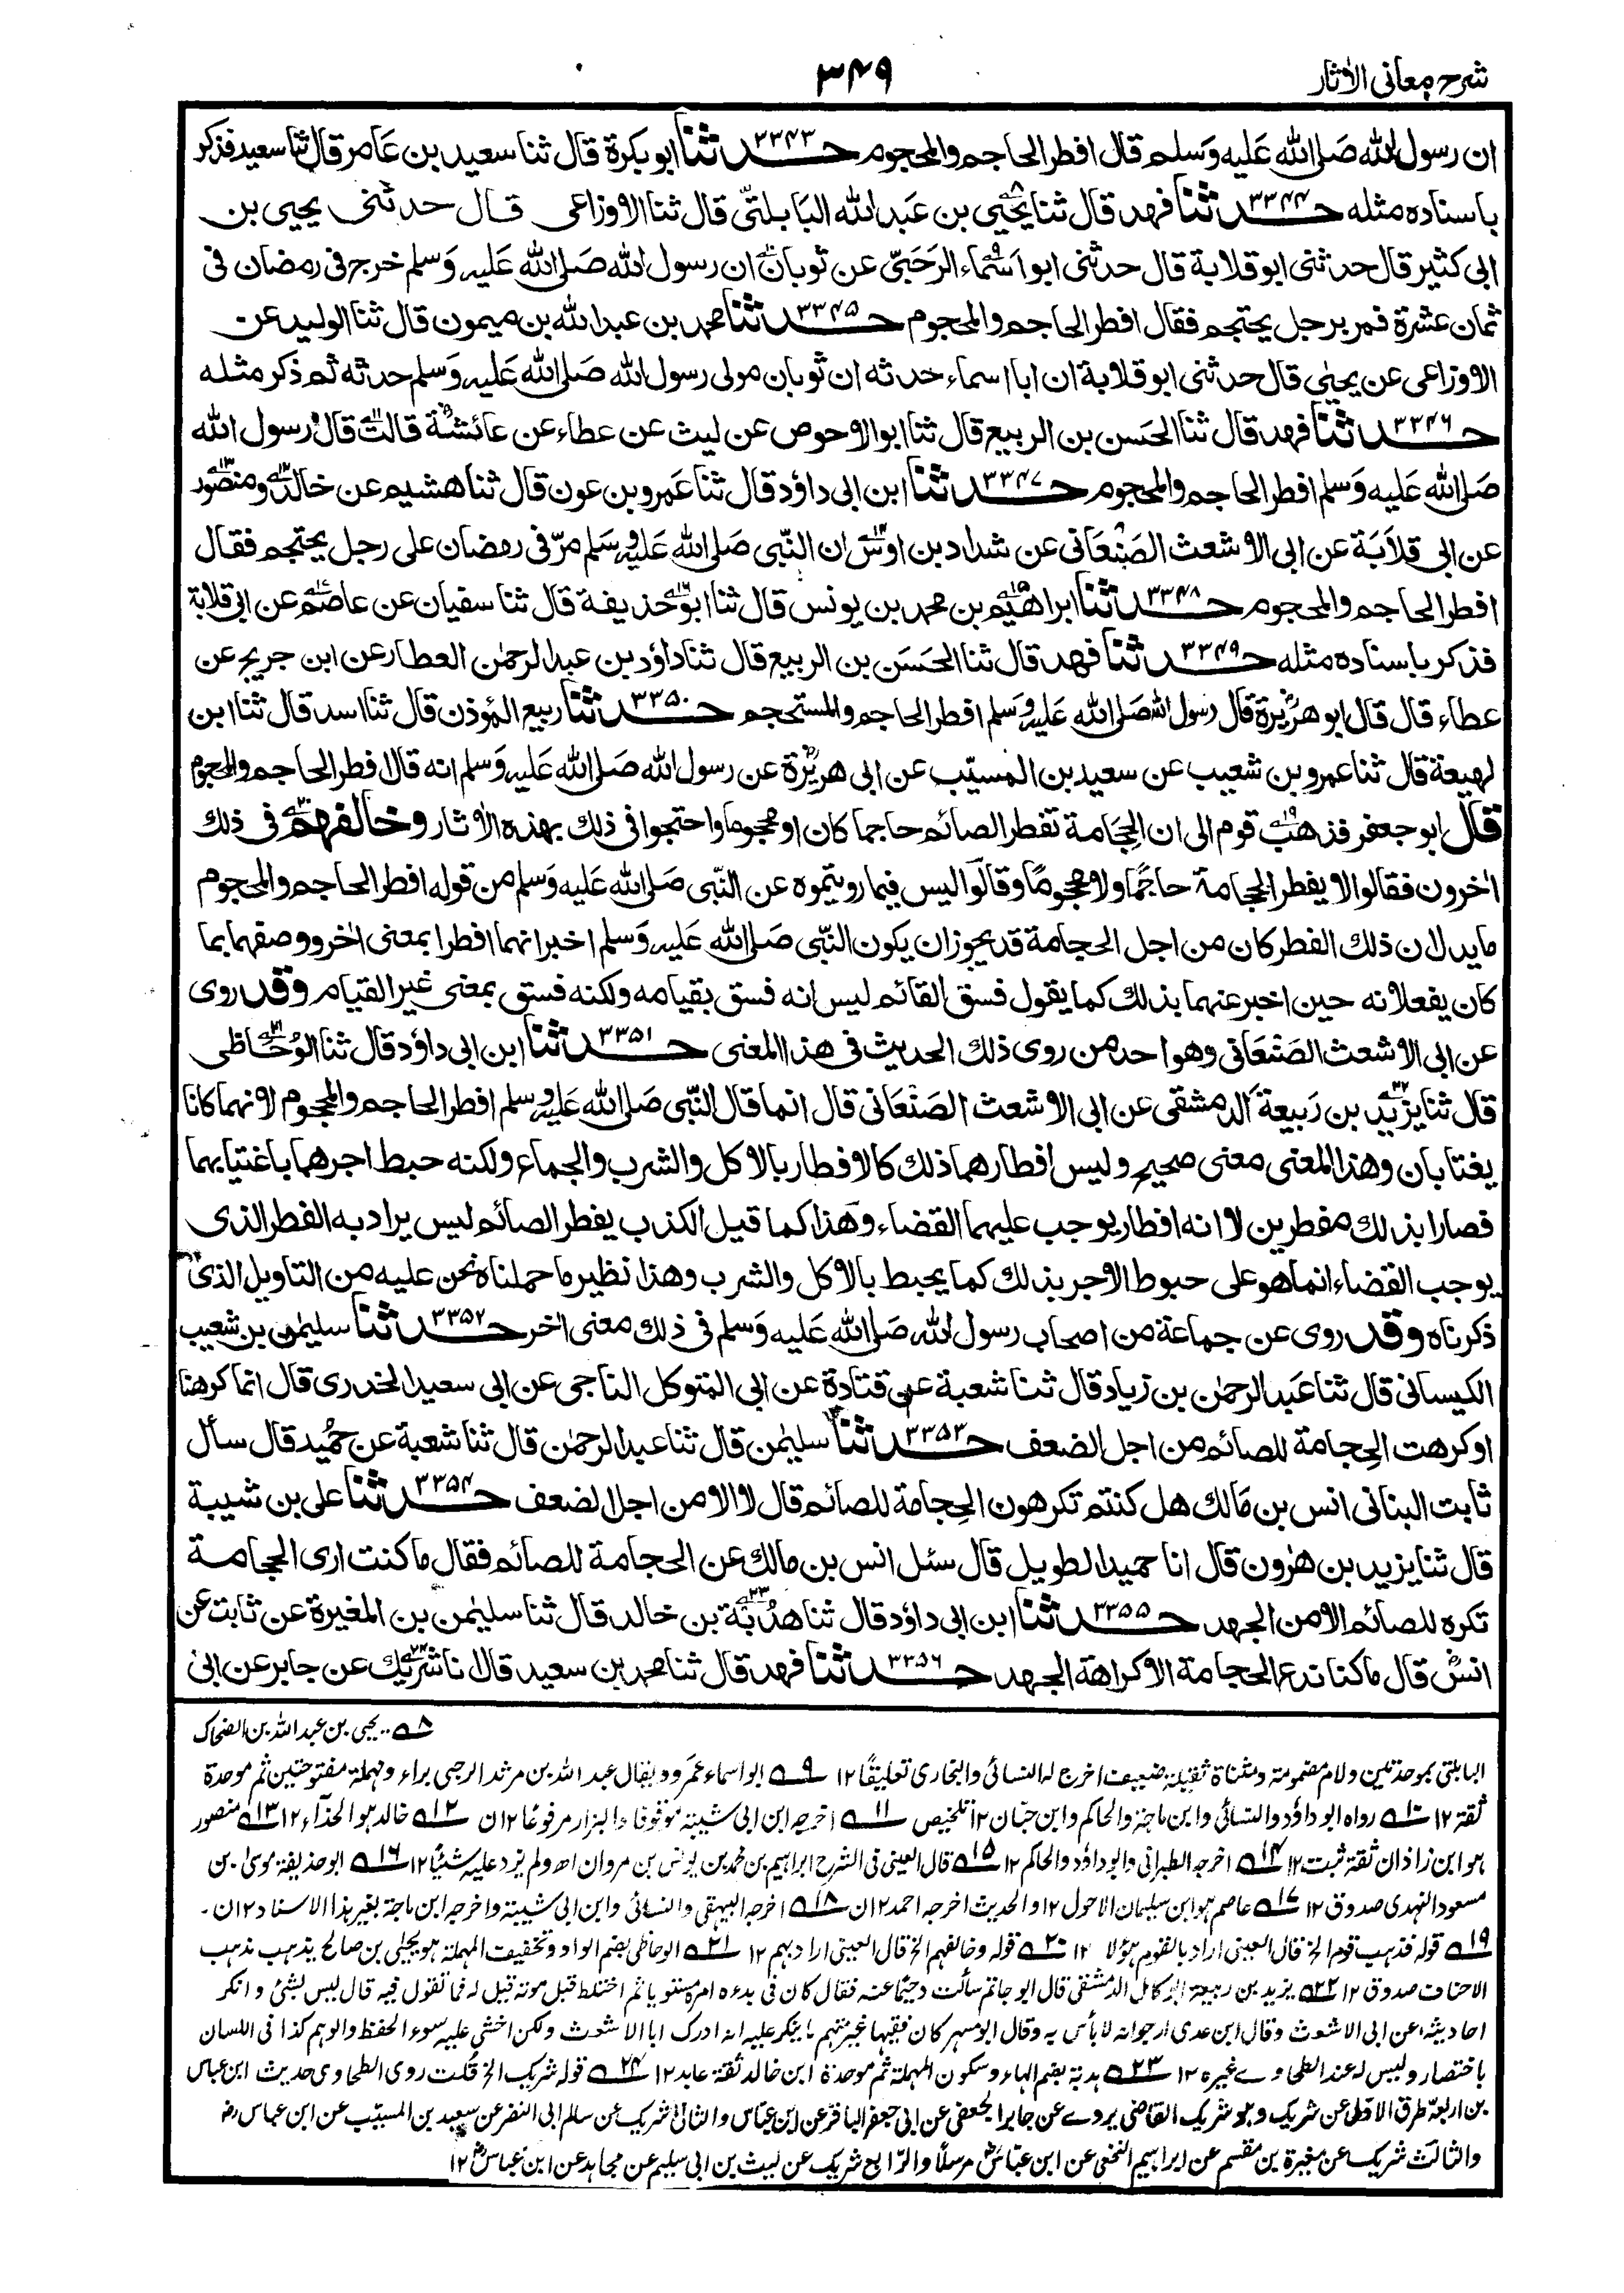 شرح معانی الاٰثار
۳۴۹
ان رسول الله صَلى الله عَليه وَسلم قال افطر الحاجم والمحجوم ۳۳۴۳ حدثنا ابو بكرة قال ثنا سعيد بن عَامر قال ثنا سعيد فذكر
باسناده مثله ۳۳۴۴ حدثنا فهد قال ثنا يحيٰي بن عَبد الله البَابلتّي قال ثنا الاوزاعى قال حدثنى يحيى بن
ابى كثير قال حدثنى ابو قلابة قال حدثنى ابو اسماء الرَحَبّي عن ثوبان ان رسول الله صَلى الله عَليه وَسلم خرج فى رمضان فى
ثمان عشرة فمر برجل يحتجم فقال افطر الحاجم والمحجوم ۳۳۴۵ حدثنا محمد بن عبد الله بن ميمون قال ثنا الوليد عن
الاوزاعى عن يحيٰى قال حدثنى ابو قلابة ان ابا اسماء حدثه ان ثوبان مولى رسول الله صَلى الله عَليه وَسلم حدثه ثم ذكر مثله
۳۳۴۶ حدثنا فهد قال ثنا الحَسَن بن الربيع قال ثنا ابو الاحوص عن ليث عن عطاء عن عائشة قالت قال رسول الله
صَلى الله عَليه وَسلم افطر الحاجم والمحجوم ۳۳۴۷ حدثنا ابن ابى داؤد قال ثنا عَمرو بن عون قال ثنا هشيم عن خالد ومنصور
عن ابى قلابَة عن ابى الاشعث الصَنعَانى عن شداد بن اوس ان النّبى صَلى الله عَليه وسَلم مرّ فى رمضان على رجل يحتجم فقال
افطر الحاجم والمحجوم ۳۳۴۸ حدثنا ابراهيم بن محمد بن يونس قال ثنا ابو حذيفة قال ثنا سفيان عن عاصم عن ابى قلابة
فذكر باسناده مثله ۳۳۴۹ حدثنا فهد قال ثنا الحَسَن بن الربيع قال ثنا داؤد بن عبد الرحمٰن العطار عن ابن جريج عن
عطاء قال قال ابو هريرة قال رسول الله صَلى الله عَليه وسَلم افطر الحاجم والمستحجم ۳۳۵۰ حدثنا ربيع المؤذن قال ثنا اسد قال ثنا ابن
لهيعة قال ثنا عمرو بن شعيب عن سعيد بن المسيّب عن ابى هريرة عن رسول الله صَلى الله عَليه وَسلم انه قال افطر الحاجم والمحجوم
قال ابو جعفر فذهب قوم الى ان الحِجَامة تفطر الصائم حاجما كان او محجوما واحتجوا فى ذلك بهذه الاٰثار وخالفهم فى ذلك
اٰخرون فقالوا لا يفطر الحجامة حاجمًا ولا محجومًا وقالوا ليس فيما رويتموه عن النّبى صَلى الله عَليه وَسلم من قوله افطر الحاجم والمحجوم
ما يدل ان ذلك الفطر كان من اجل الحجامة قد يجوز ان يكون النّبى صَلى الله عَليه وَسلم اخبر انهما افطرا بمعنى اٰخر ووصفهما بما
كان يفعلانه حين اخبر عنهما بذلك كما يقول فسق القائم ليس انه فسق بقيامه ولكنه فسق بمعنى غير القيام وقد روى
عن ابى الاشعث الصَنعَانى وهو احد من روى ذلك الحديث فى هذا المعنى ۳۳۵۱ حدثنا ابن ابى داؤد قال ثنا الوُحَاظى
قال ثنا يزيد بن رَبيعة الدمشقى عن ابى الاشعث الصَنعَانى قال انما قال النّبى صَلى الله عَليه وسلم افطر الحاجم والمحجوم لانهما كانا
يغتابان وهذا المعنى معنى صحيح وليس افطارهما ذلك كالافطار بالاكل والشرب والجماع ولكنه حبط اجرهما باغتيابهما
فصارا بذلك مفطرين لا انه افطار يوجب عليهما القضاء وهٰذا كما قيل الكذب يفطر الصائم ليس يراد به الفطر الذى
يوجب القضاء انما هو على حبوط الاجر بذلك كما يحبط بالاكل والشرب وهذا نظير ما حملناه نحن عليه من التاويل الذى
ذكرناه وقد روى عن جماعة من اصحاب رسول الله صَلى الله عَليه وَسلم فى ذلك معنى اٰخر ۳۳۵۲ حدثنا سليمٰن بن شعيب
الكيسانى قال ثنا عَبد الرحمٰن بن زياد قال ثنا شعبة عن قتادة عن ابى المتوكل الناجى عن ابى سعيد الخدرى قال انما كرهنا
او كرهت الحِجامة للصائم من اجل الضعف ۳۳۵۳ حدثنا سليمٰن قال ثنا عبد الرحمٰن قال ثنا شعبة عن حُميد قال سأل
ثابت البنانى انس بن مَالك هل كنتم تكرهون الحِجامة للصائم قال لا الا من اجل الضعف ۳۳۵۴ حدثنا على بن شيبة
قال ثنا يزيد بن هٰرون قال انا حميد الطويل قال سئل انس بن مالك عن الحجامة للصائم فقال ما كنت ارى الحجامة
تكره للصائم الا من الجهد ۳۳۵۵ حدثنا ابن ابى داؤد قال ثنا هدبة بن خالد قال ثنا سليمٰن بن المغيرة عن ثابت عن
انس قال ما كنا ندع الحجامة الا كراهة الجهد ۳۳۵۶ حدثنا فهد قال ثنا محمد بن سعيد قال انا شريك عن جابر عن ابى
۸ يحيى بن عبد الله بن الضحاك
البابلتى بموحدتين ولام مضمومة ومثناة ثقيلة ضعيف اخرج له النسائى والبخارى تعليقًا ۱۲ ۹ ابو اسماء عمرو ويقال عبد الله بن مرثد الرحبى براء ومهملة مفتوحتين ثم موحدة
ثقة ۱۲ ۱۰ رواه ابو داؤد والنسائى وابن ماجة والحاكم وابن حبان ۱۲ تلخيص ۱۱ اخرجه ابن ابى شيبة موقوفا والبزار مرفوعًا ۱۲ن ۱۲ خالد هو الحذآء ۱۲ ۱۳ منصور
هو ابن زاذان ثقة ثبت ۱۲ ۱۴ اخرجه الطبرانى وابو داؤد والحاكم ۱۲ ۱۵ قال العينى فى الشرح ابراهيم بن محمد بن يونس بن مروان اھ ولم يزد عليه شيئًا ۱۲ ۱۶ ابو حذيفة موسىٰ بن
مسعود النهدى صدوق ۱۲ ۱۷ عاصم هو ابن سليمان الاحول ۱۲ والحديث اخرجه احمد ۱۲ن ۱۸ اخرجه البيهقى والنسائى وابن ابى شيبة واخرجه ابن ماجة بغير هذا الاسناد ۱۲ن۔
۱۹ قوله فذهب قوم الخ قال العينى اراد بالقوم هؤلا ۱۲ ۲۰ قوله وخالفهم الخ قال العينى اراد بهم ۱۲ ۲۱ الوحاظى بضم الواو وتخفيف المهملة هو يحيىٰ بن صالح يذهب مذهب
الاحناف صدوق ۱۲ ۲۲ يزيد بن ربيعة ابو كامل الدمشقى قال ابو حاتم سألت دحيمًا عنه فقال كان فى بدءه امره مستويا ثم اختلط قبل موته قيل له فما تقول فيه قال ليس بشئ وانكر
احاديثه عن ابى الاشعث وقال ابن عدى ارجو انه لا بأس به وقال ابو مسهر كان فقيها غير متهم ما ينكر عليه انه ادرك ابا الاشعث ولكن اخشى عليه سوء الحفظ والوهم كذا فى اللسان
باختصار وليس له عند الطحاوے غيره ۱۲ ۲۳ هدبة بضم الهاء وسكون المهملة ثم موحدة ابن خالد ثقة عابد ۱۲ ۲۴ قوله شريك الخ قلت روى الطحاوى حديث ابن عباس
من اربعة طرق الاولى عن شريك وهو شريك القاضى يروے عن جابر الجعفى عن ابى جعفر الباقر عن ابن عبّاس والثانى شريك عن سالم ابى النضر عن سعيد بن المسيّب عن ابن عباس رض
والثالث شريك عن مغيرة بن مقسم عن ابراهيم النخعى عن ابن عبّاس مرسلًا والرّابع شريك عن ليث بن ابى سليم عن مجاهد عن ابن عباس رض ۱۲